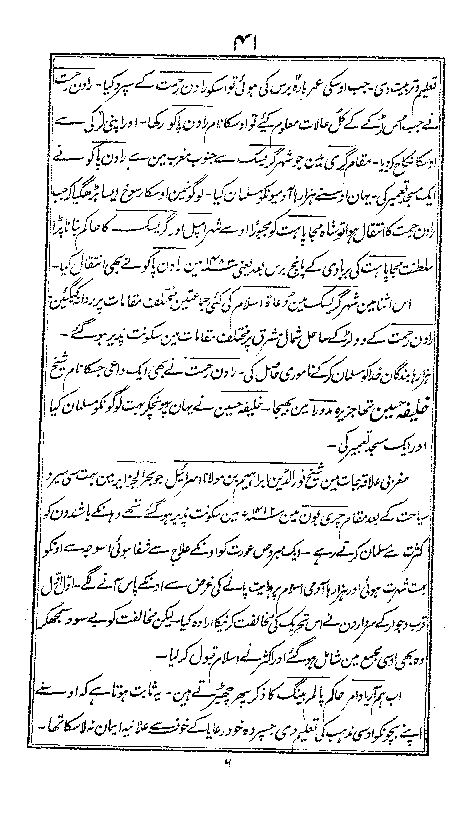 ۴۱
تعلیم و تربیت دی۔ جب اوسکی عمر بارہ برس کی ہوئی تو اسکو رادن رحمت کے سپرد کیا۔ رادن رحمت
نے جب اس لڑکے کے کل حالات معلوم کیے تو اوسکا نام رادن پاکو رکھا۔ اور اپنی لڑکی سے
اوسکا نکاح کر دیا۔ مقام گری مین جو شہر گریسک سے جنوب مغرب مین ہے رادن پاکو نے
ایک مسجد تعمیر کی۔ یہان اوسنے ہزارہا آدمیونکو مسلمان کیا۔ لوگونمین اوسکا رسوخ ایسا بڑھ گیا کہ جب
رادن رحمت کا انتقال ہوا تو شاہ مجاپاہت کو مجبوراً اوسے شہر امپل اور گریسک کا حاکم بنانا پڑا
سلطنت مجاپاہت کی بربادی کے پانچ برس بعد یعنی میں رادن پاکو نے بھی انتقال کیا۔
اس اثنا مین شہر گریسک مین دعاۃ اسلام کی کئی جماعتین مختلف مقامات پر روانہ کیگئین
رادن رحمت کے دو لڑکے ساحل شمال مشرق پر مختلف مقامات مین سکونت پذیر ہو گئے۔
ہزارہا بندگان خدا کو مسلمان کر کے ناموری حاصل کی۔ رادن رحمت نے بھی ایک داعی جسکا نام شیخ
خلیفہ حسین تھا جزیرہ مدورا مین بھیجا۔ خلیفہ حسین نے یہان پہونچکر بہت لوگونکو مسلمان کیا
اور ایک مسجد تعمیر کی۔
مغربی علاقجات مین شیخ نور الدین ابراہیم بن مولانا اسرائیل جو بحر الجزائر مین بہت سی سیر و
سیاحت کے بعد مقام چری بون مین سنہ ۱۴۱۲ء مین سکونت پذیر ہو گئے تھے وہانکے باشندون کو
کثرت سے مسلمان کرتے رہے۔ ایک مبروص عورت کو اونکے علاج سے شفا ہوئی اسوجہ سے اونکو
بہت شہرت ہوئی اور ہزارہا آدمی اسلام پر ہدایت پانے کی غرض سے اونکے پاس آنے لگے۔ اول اول
قرب و جوار کے سردارون نے اس تحریک کی مخالفت کرنیکا ارادہ کیا لیکن مخالفت کو بے سود سمجھکر
وہ بھی اسی مجمع مین شامل ہو گئے اور اکثر نے اسلام قبول کر لیا۔
اب ہم آریا دامر حاکم پالم بینگ کا ذکر پھر چھیڑتے ہین۔ یہ ثابت ہوتا ہے کہ اوسنے
اپنے بچونکو اوسی مذہب کی تعلیم دی جسپر وہ خود رعایا کے خوف سے علانیہ ایمان نہ لا سکتا تھا۔
۶